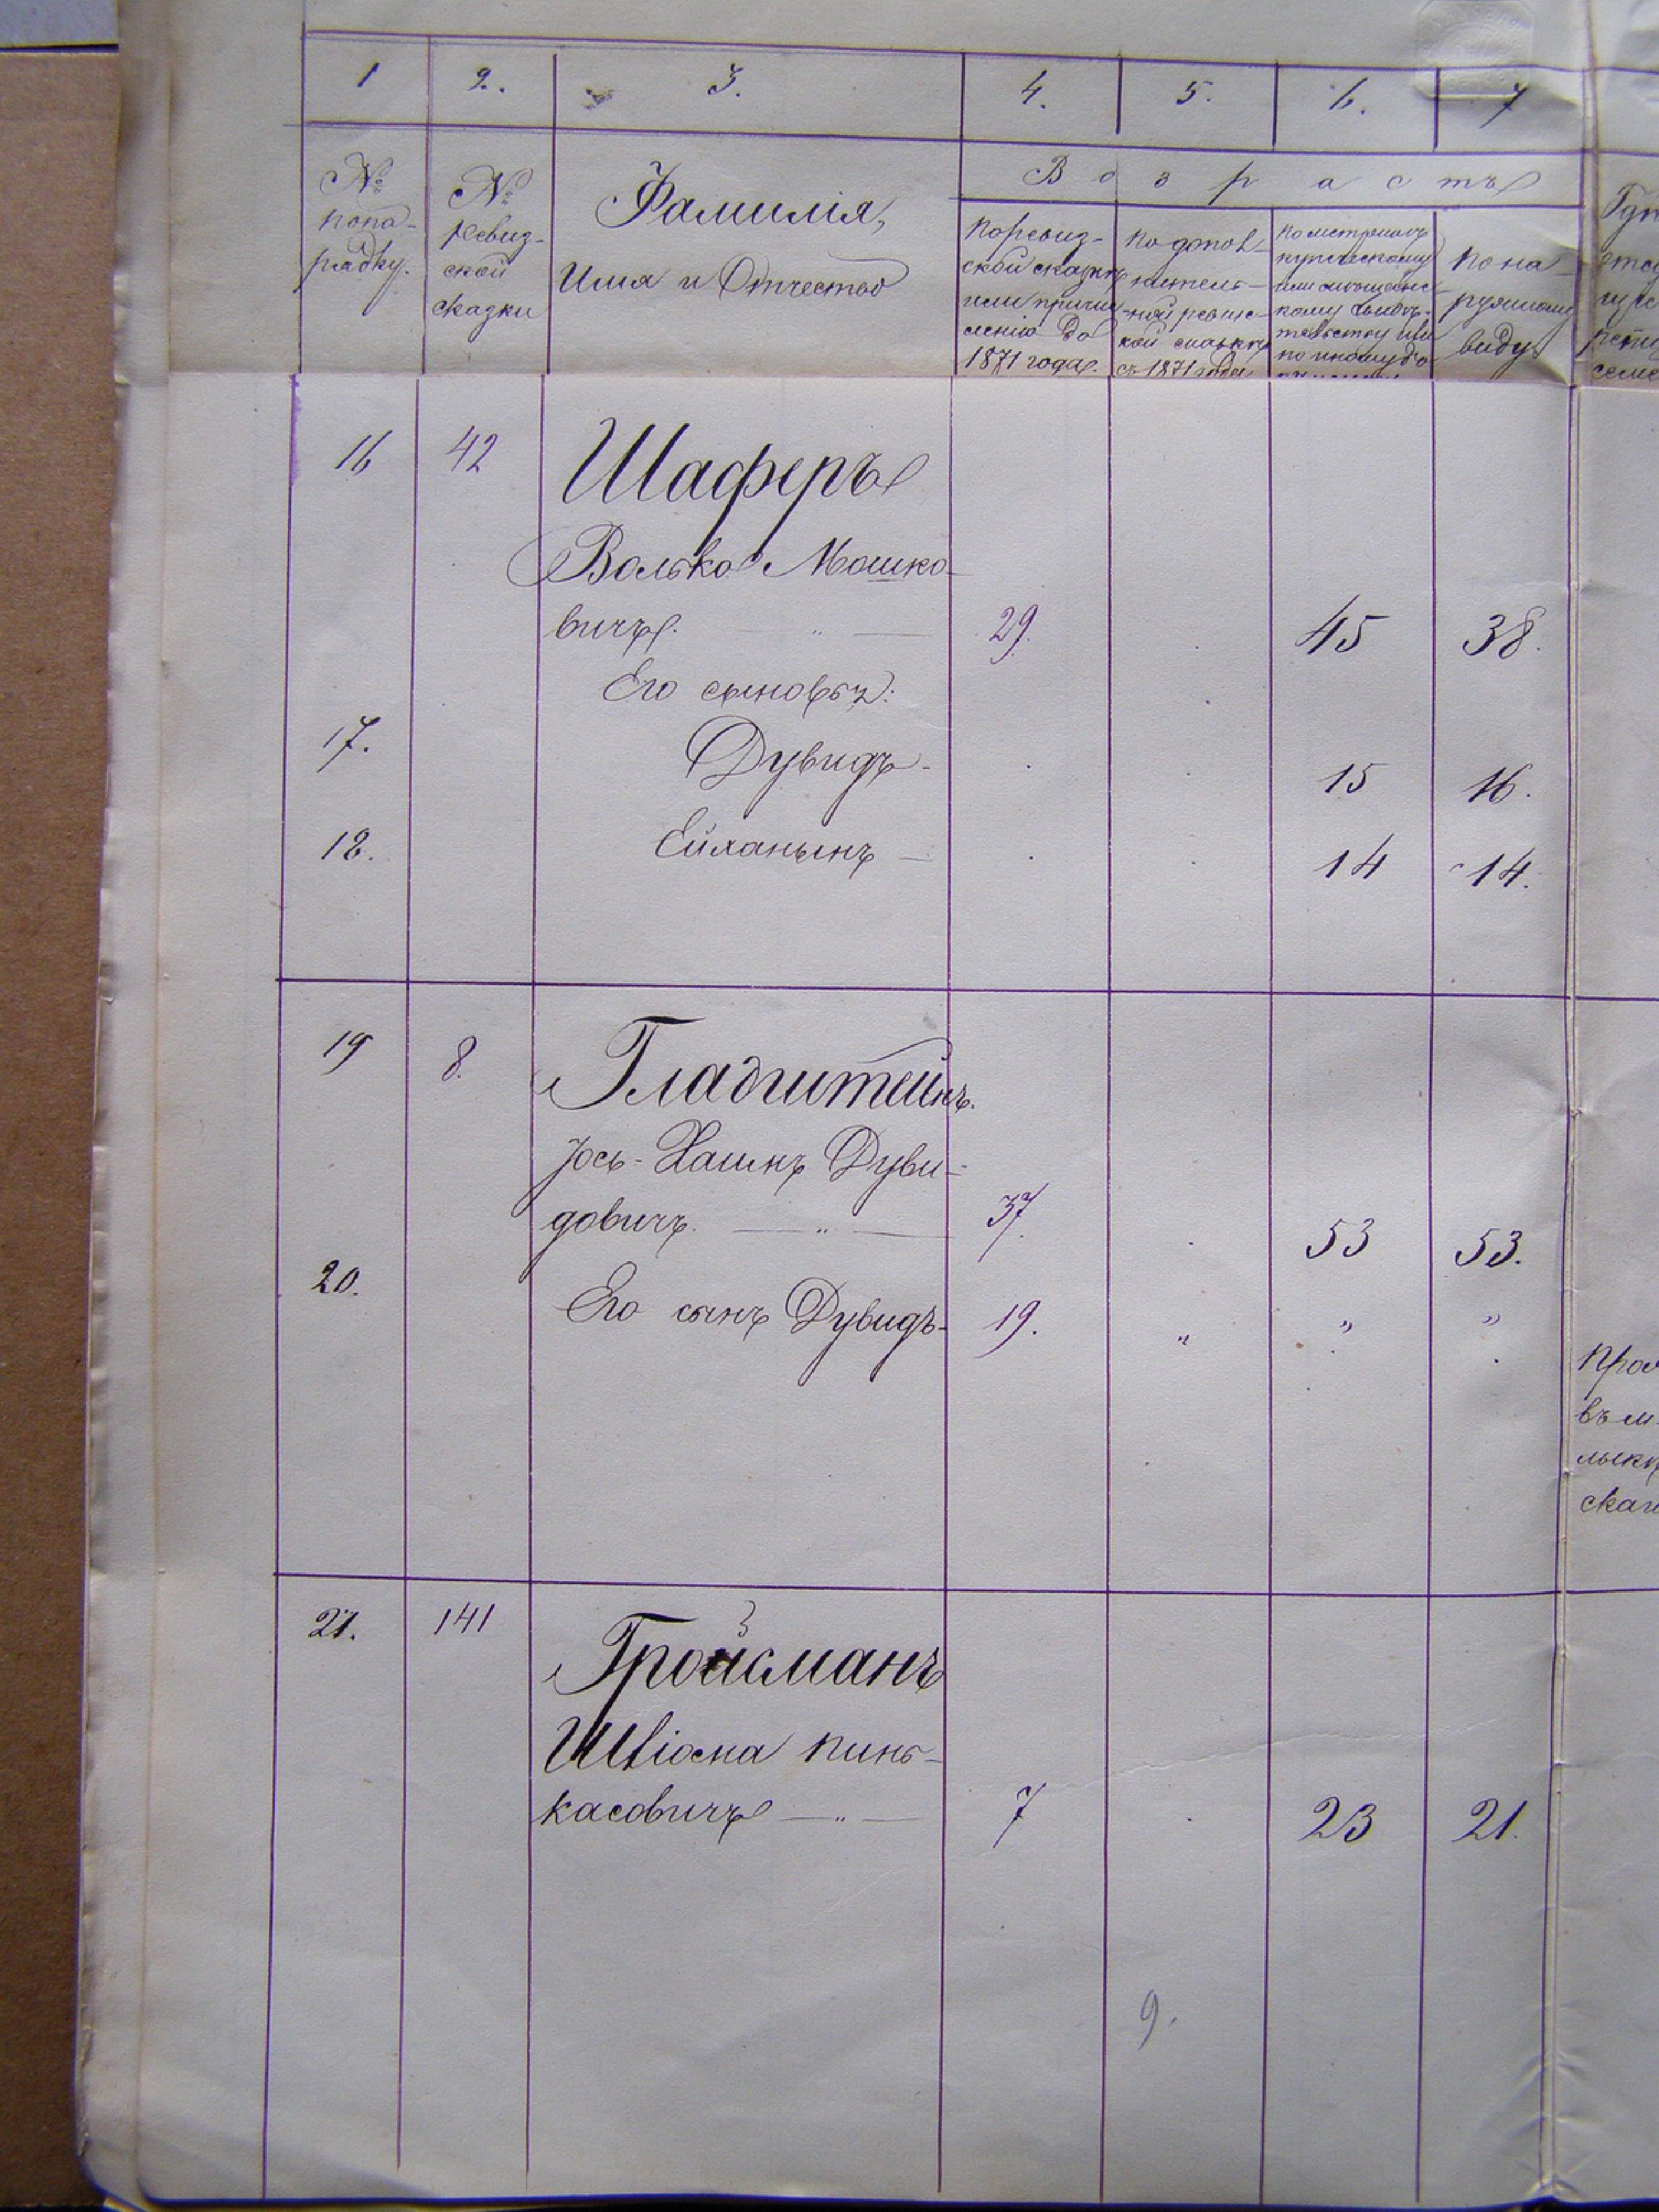 1 2. 3. 4. 5. 6. 7
В о з р а с т ъ
№ попо-
рядку.
№ ревиз-
ской
сказки
Фамилія,
Имя и Отчество
по ревиз-
ской сказкѣ
или причи-
сленію до
1871 года.
по допол-
нитель-
ной ревиз-
кой сказкѣ
съ 1871 года
купеческому
или мѣщанс-
кому
по иному до
по на-
ружному
виду
16 42 Шаферъ
Волько Мошко-
вичъ. — " — 29. 45 38.
Его сыновья:
17. Дувидъ - 15 16.
18. Ейланынъ — 14 14.
19 8. Гладштейнъ.
Іось-Хаимъ Дуви-
довичъ. — " — 37. 53 53.
20. Его сынъ Дувидъ - 19. " " "
Прож
въ м.
21. 141 Гройсманъ
Пинь-
касовичъ — " — 7 23 21.
9.